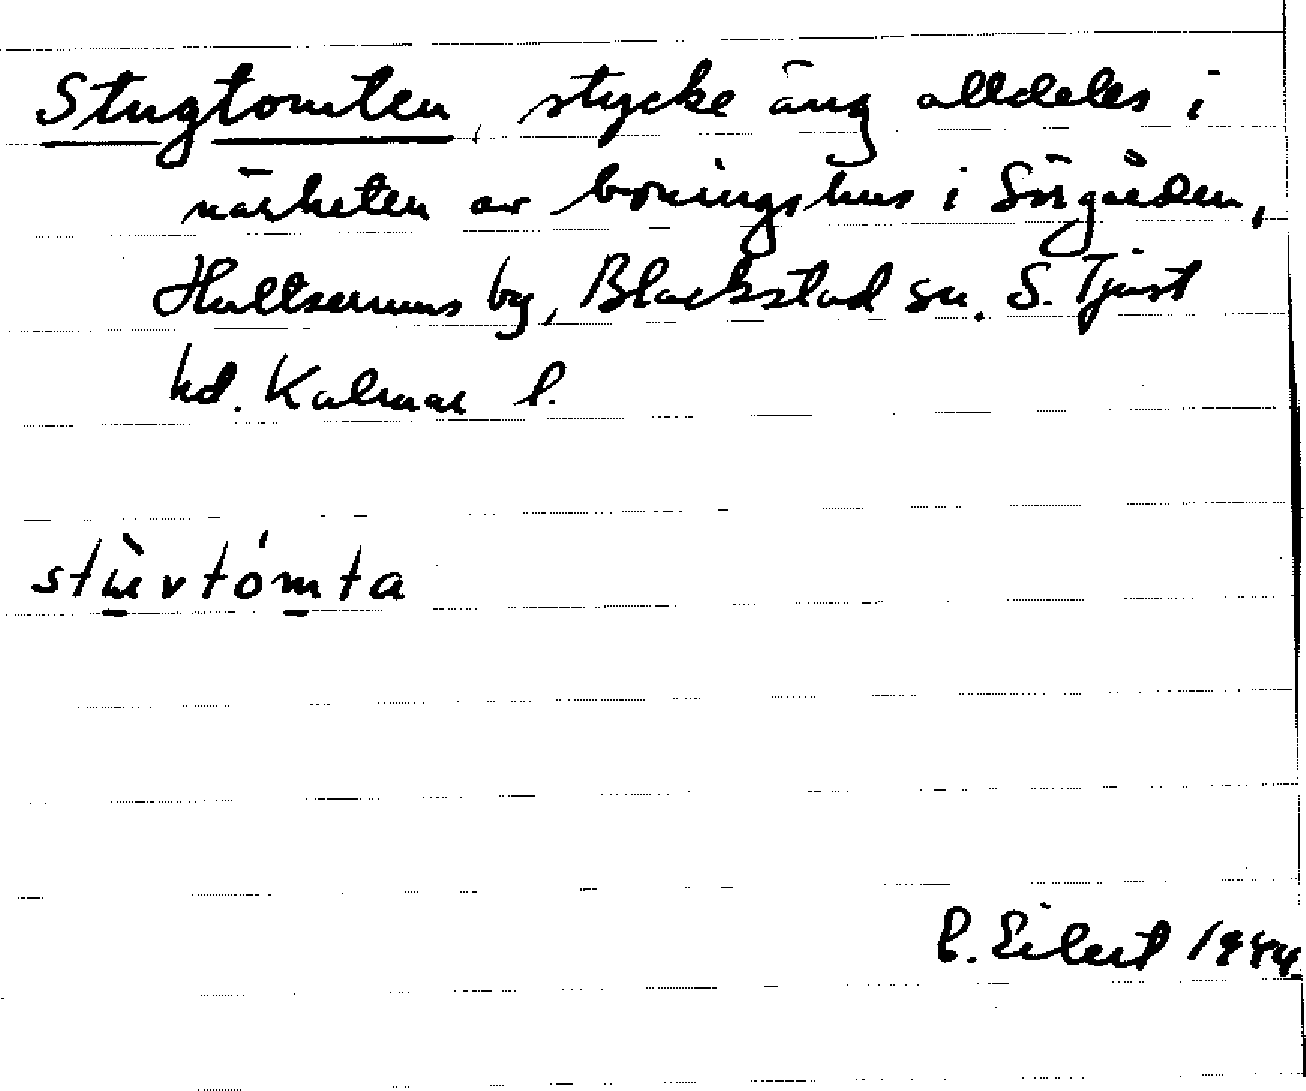 Stugtomten, stycke äng alldeles i
närheten av boningshus i Sörgården,
Hultserums by, Blackstad sn. S. Tjust
hd. Kalmar l.
stùvtómta
E. Eilert 1944